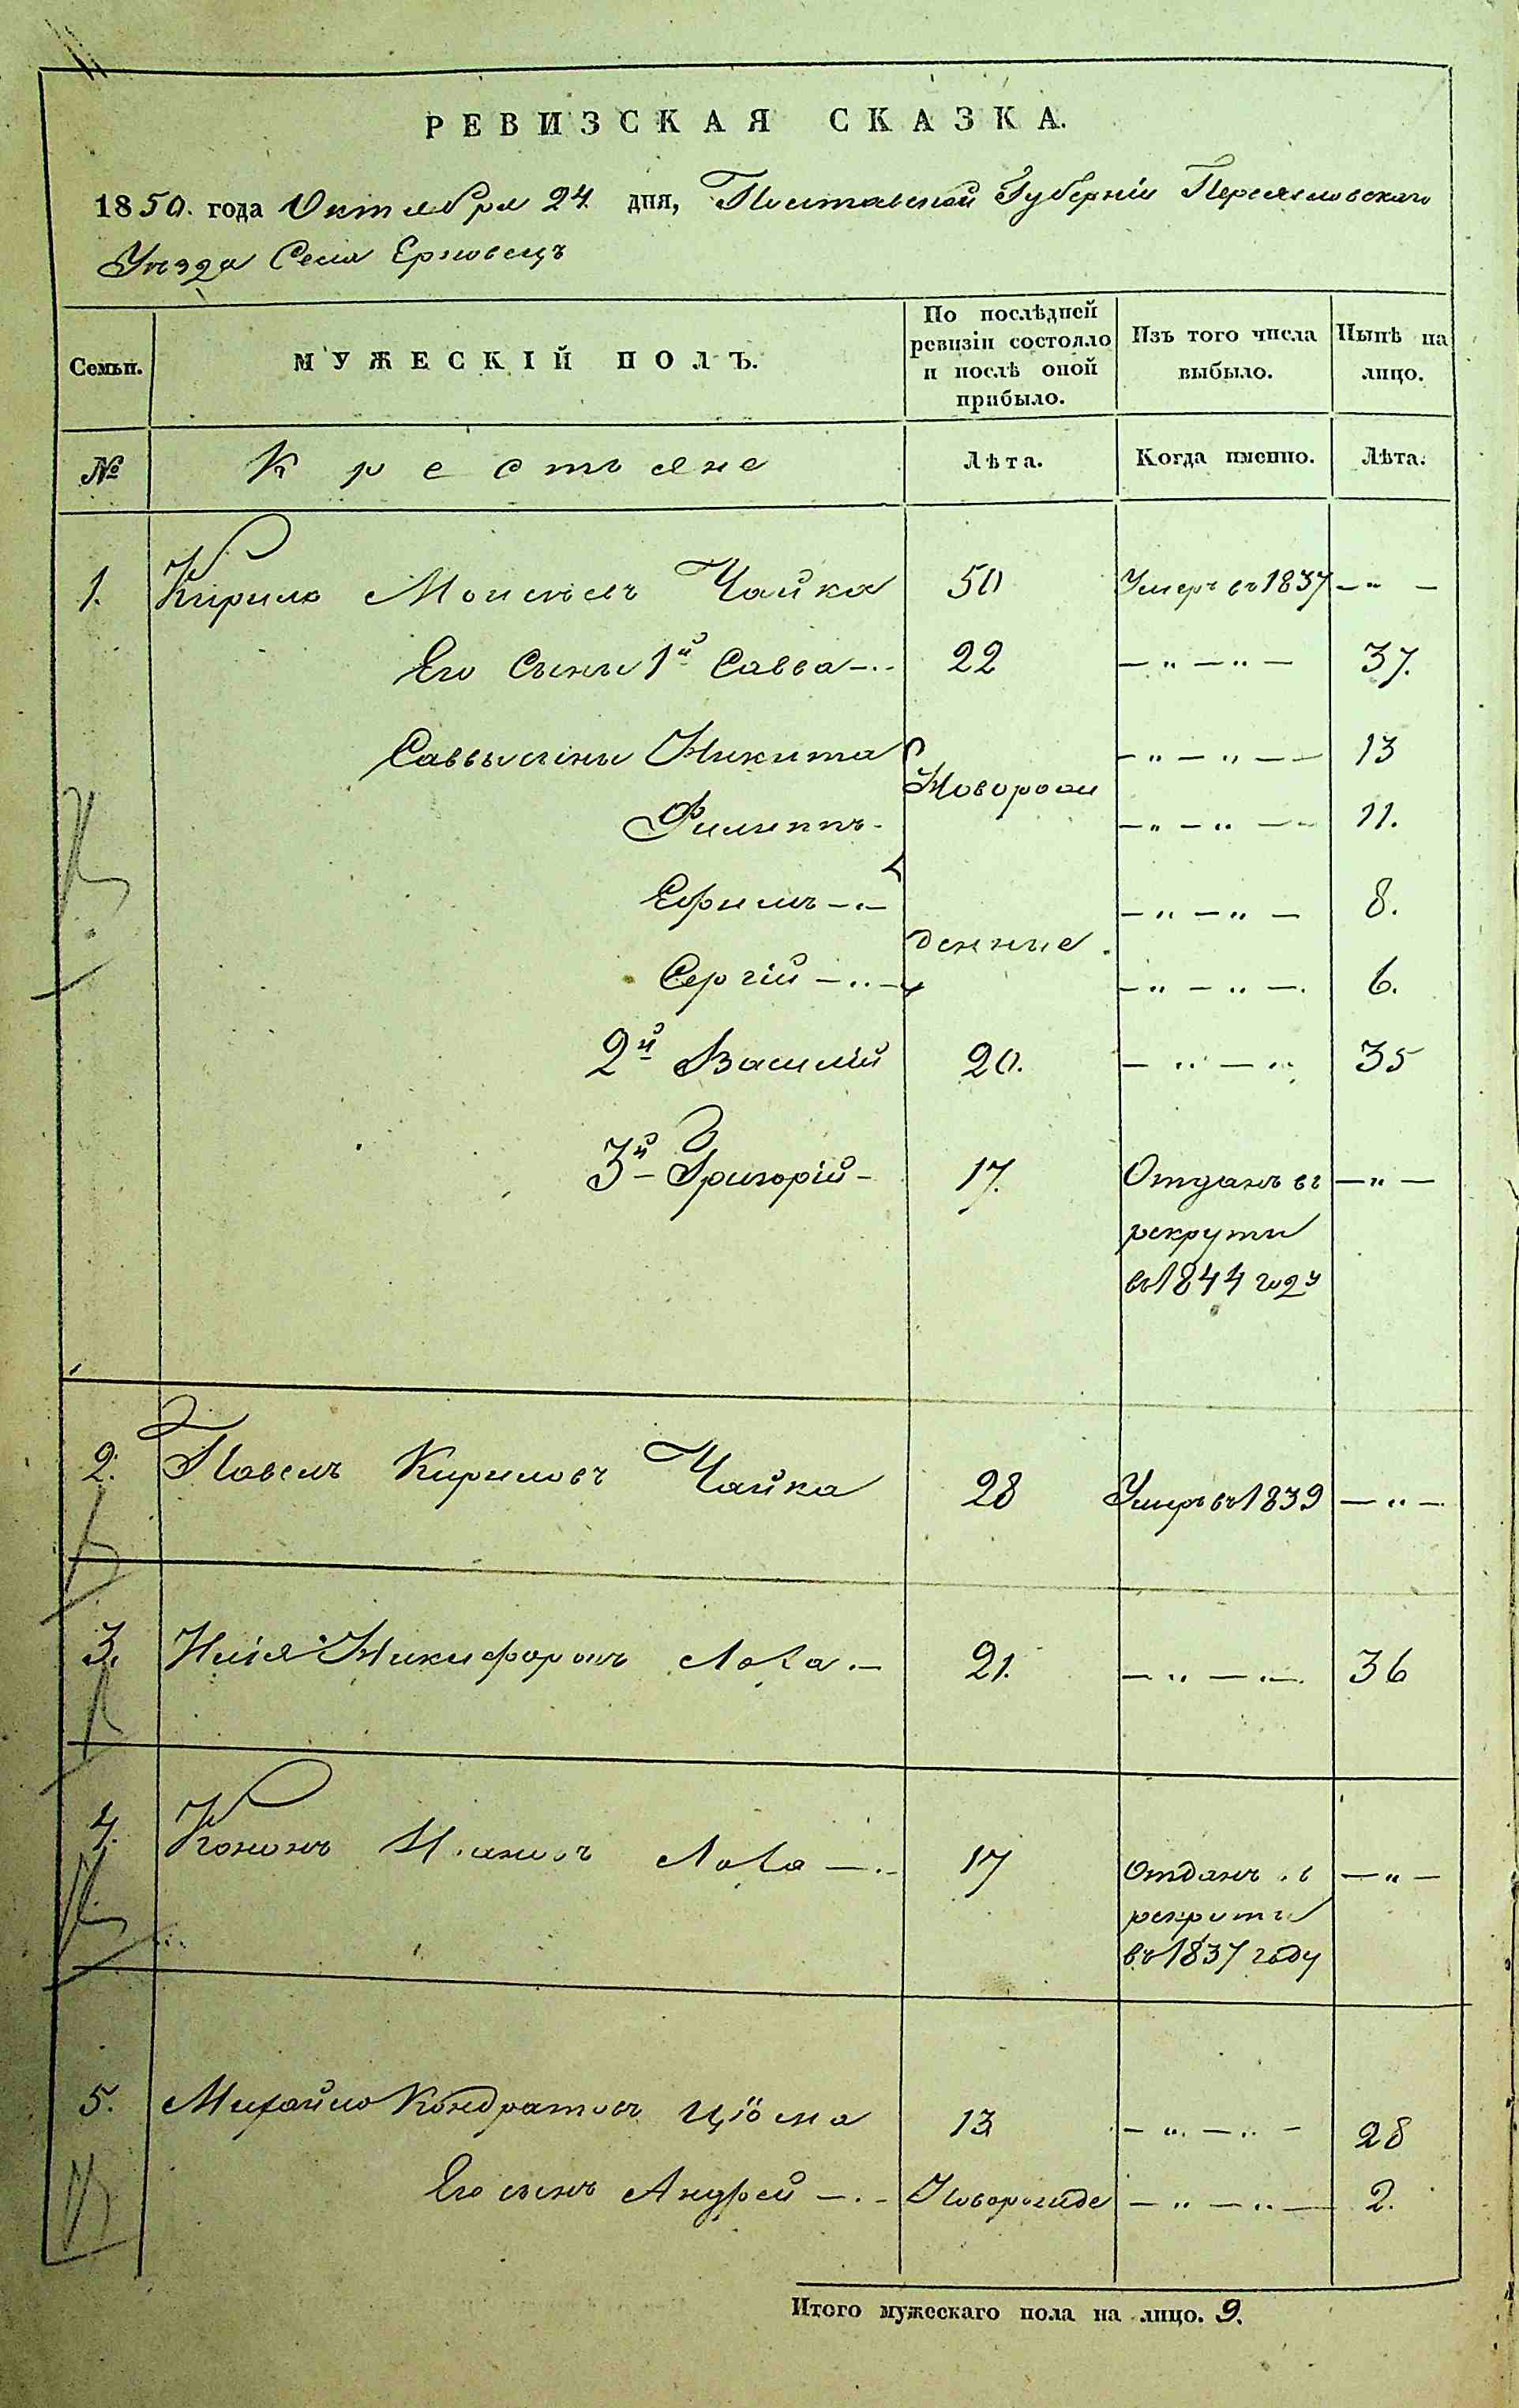 РЕВИЗСКАЯ СКАЗКА.
1850. года Октября 24 дня, Полтавской Губерніи Переяславского
Уезда Села Ерковецъ
Семьи.
МУЖЕСКІЙ ПОЛЪ.
По послѣдней ревизіи состояло и послѣ оной прибыло.
Изъ того числа выбыло.
Нынѣ на лицо.
№ Крестьяне Лѣта. Когда именно. Лѣта.
1. Кирило Моисѣевъ Чайка 50 Умеръ въ 1837 — „ —
Его Сыны 1й Савва — 22 — „ — „ — 37.
Саввы сыны Никита — „ — „ — 13
Новорож
Филиппъ — „ — „ — 11.
Ефимъ — „ — „ — 8.
денные.
Сергій — „ — „ — 6.
2й Василий 20. — „ — „ 35
3й Григорій 17. Отданъ въ — „ —
рекруты
въ 1844 году
2. Павелъ Кириловъ Чайка 28 Умеръ въ 1839 — „ —
3. Никифоровъ 21. — „ — „ — 36
4. Кононъ 17 Отданъ въ — „ —
рекруты
въ 1837 году
5. Михайло Кондратовъ Цiома 13 — „ — „ — 28
Его сынъ Андрей — Новорожде — „ — „ — 2.
Итого мужескаго пола на лицо. 9.